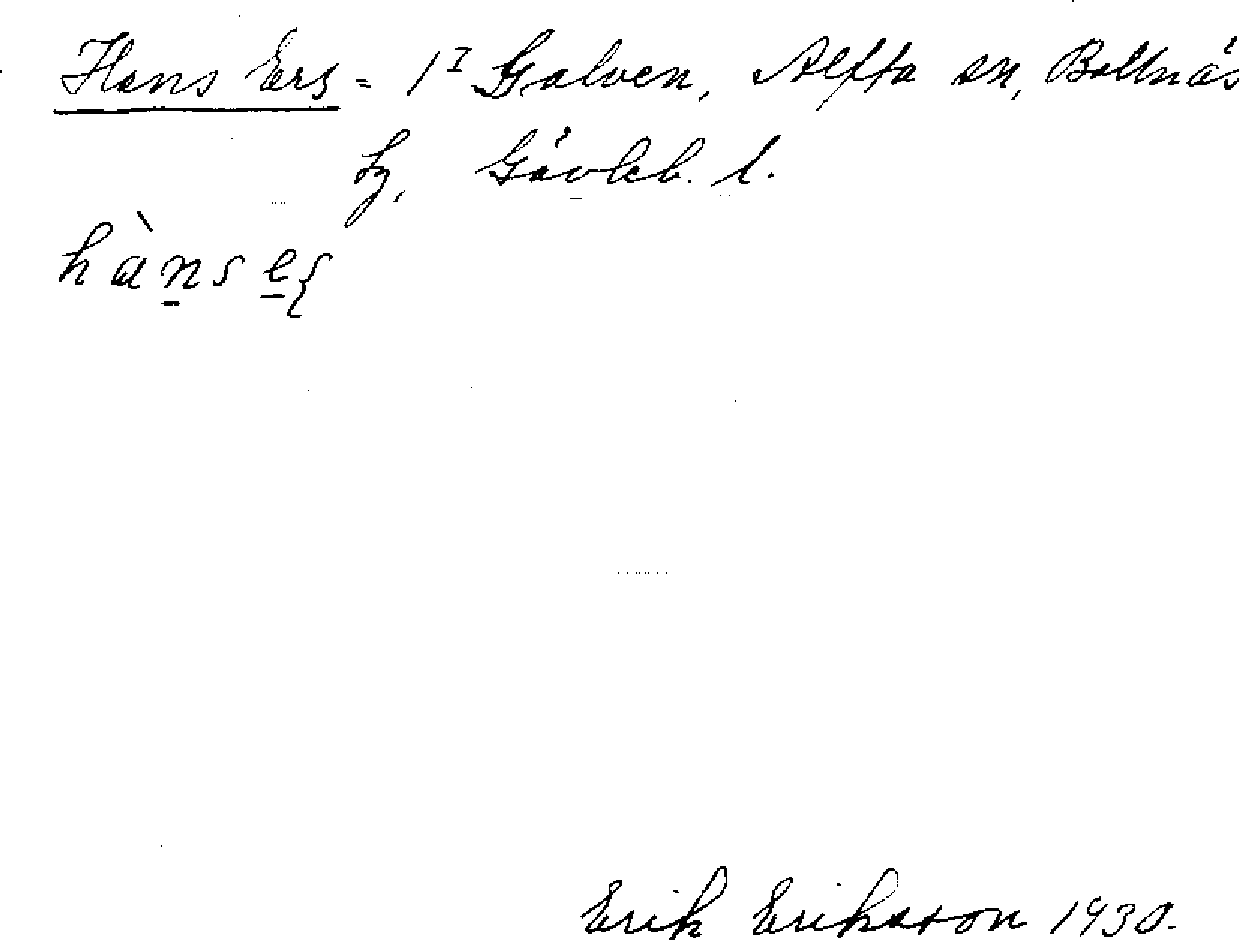 Hans Ers = 1^I Galven, Alfta sn, Bollnäs
tg, Gävleb. l.
hànseʂ
Erik Eriksson 1930.